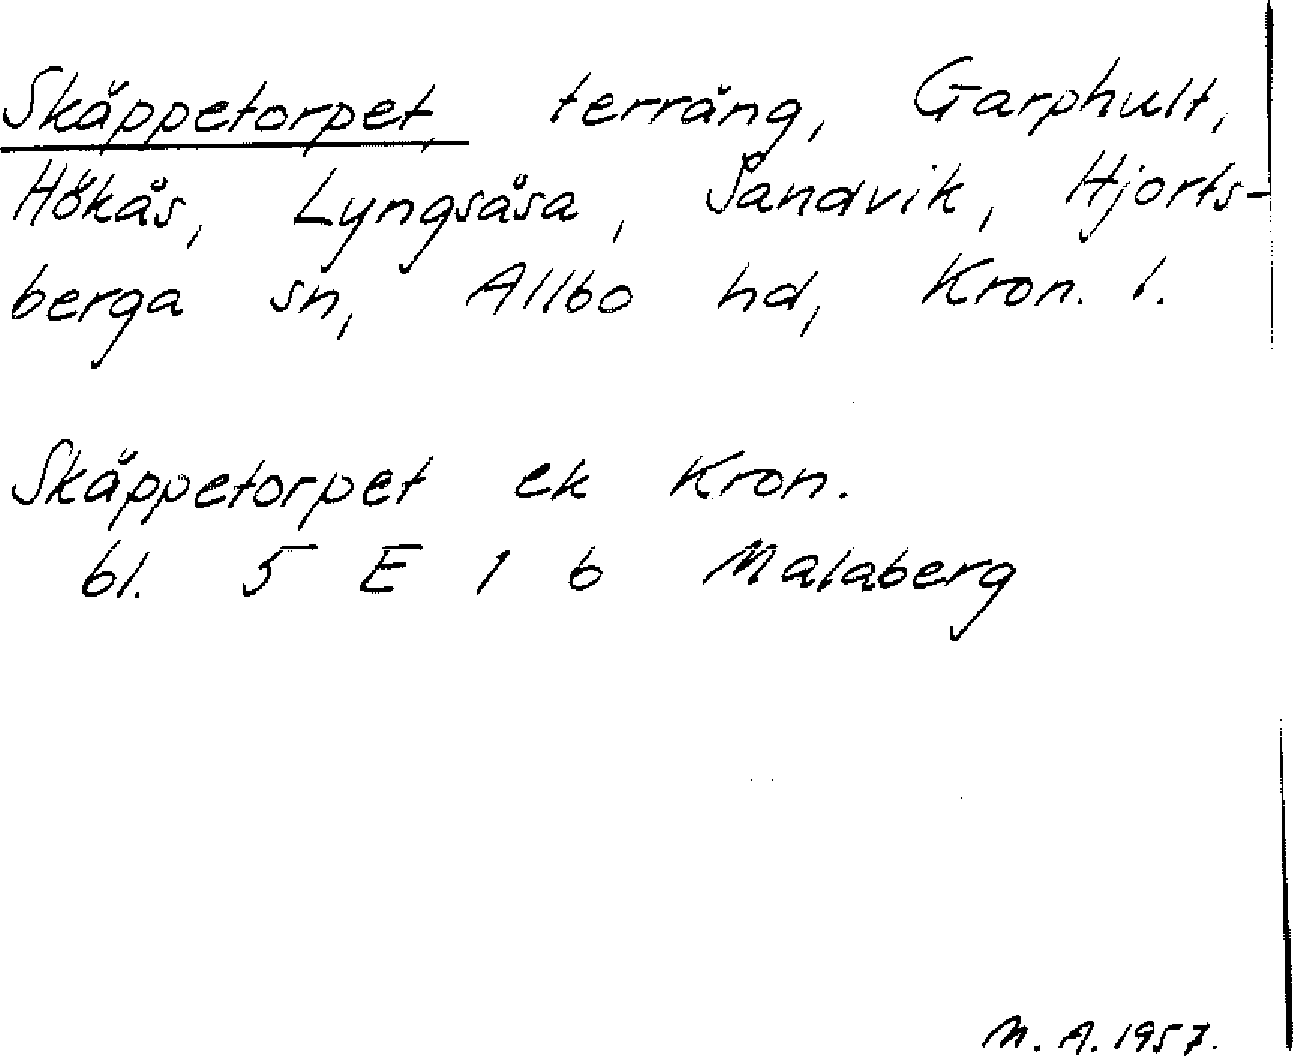 Skäppetorpet, terräng, Garphult,
Hökås, Lyngsåsa, Sandvik, Hjorts-
berga sn, Allbo hd, Kron. l.
Skäppetorpet ek Kron.
bl. 5 E 1 b Malaberg
M. A. 1957.